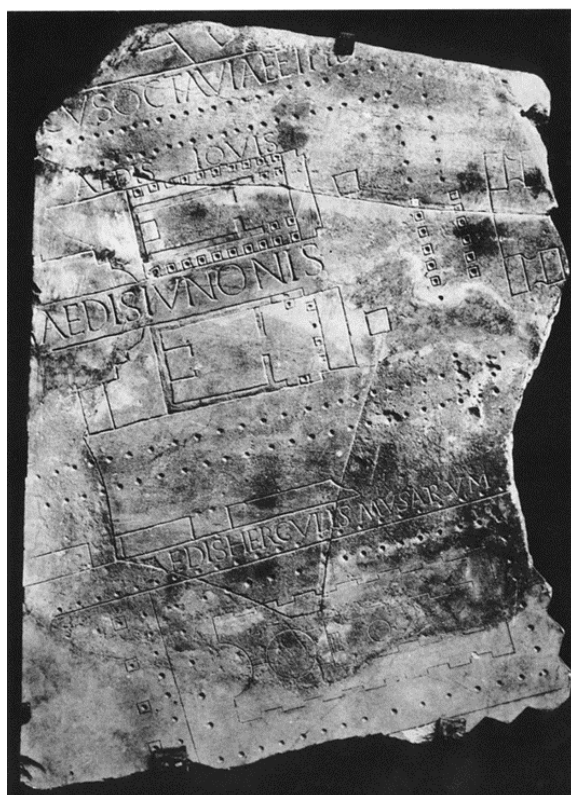 CVSOCTAVIAEETPH
AEDIS IOVIS
AEDISIVNONIS
AEDISHERCVLISMVSARVM